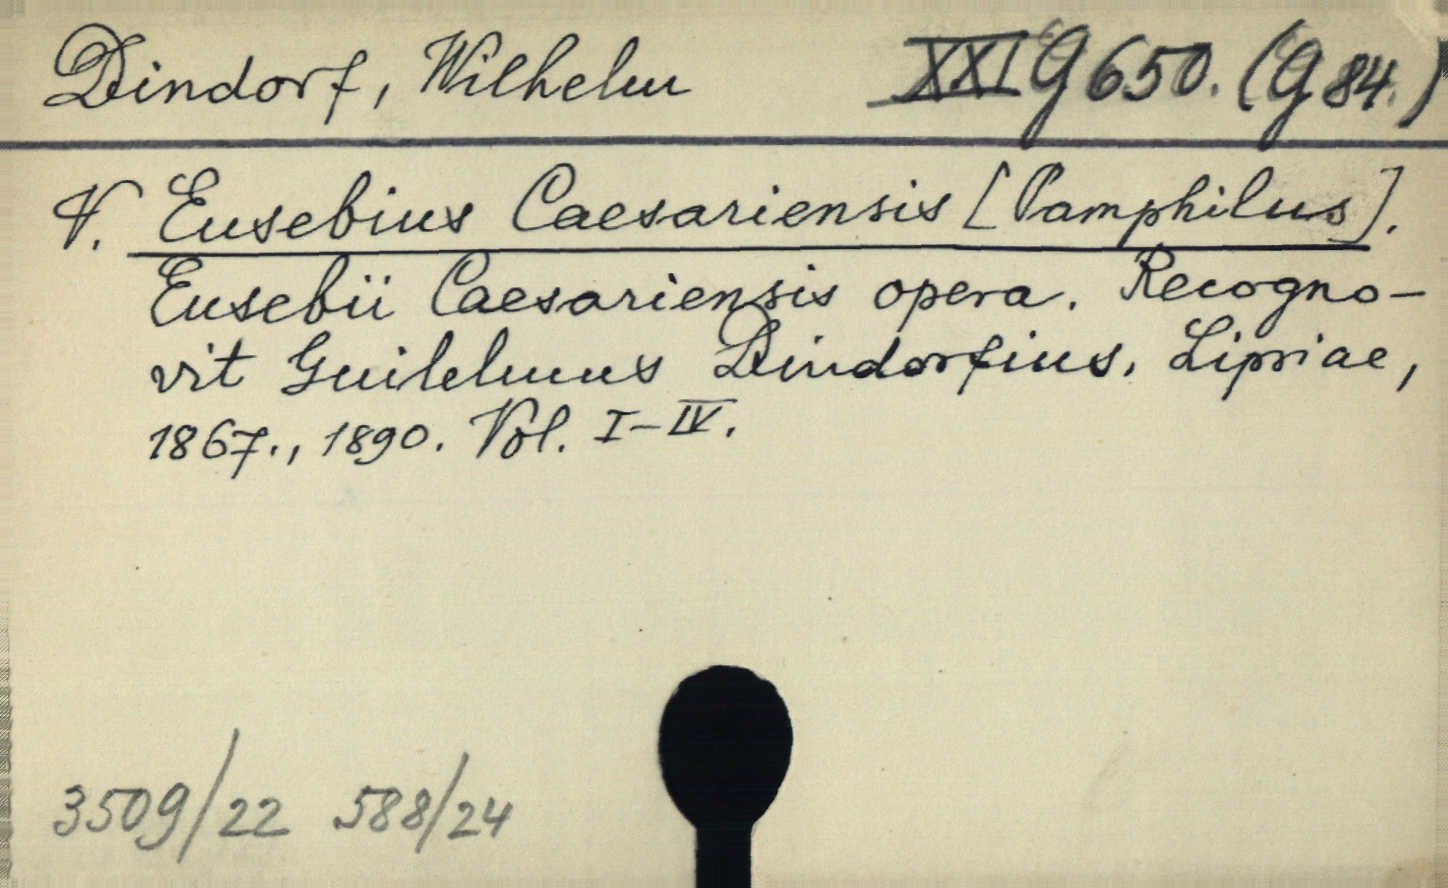 Dindorf, Wilhelm XXI G 650. (G 84.)
V. Eusebius Caesariensis [Pamphilus].
Eusebii Caesariensis opera. Recogno-
vit Guilelmus Dindorfius. Lipsiae,
1867., 1890. Vol. I-IV.
3509/22 588/24